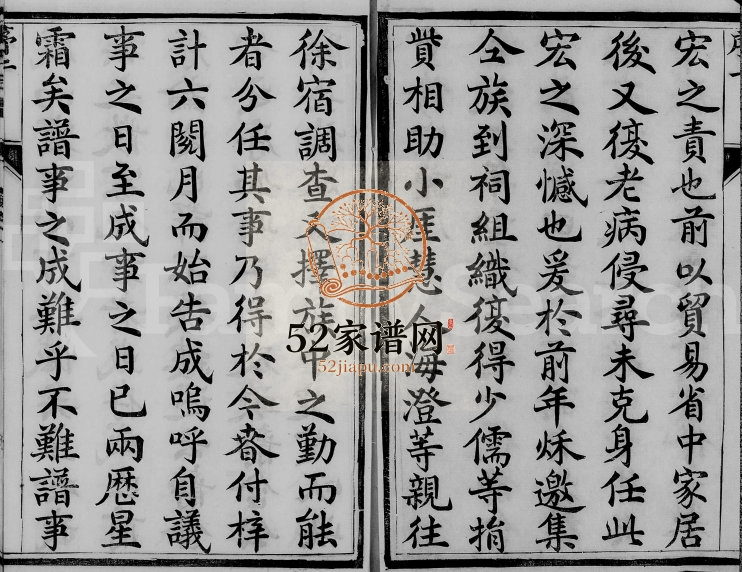 宏之責也前以貿易省中家居
後又復老病侵尋未克身任此
宏之深憾也爰於前年秌邀集
仝族到祠組織復得少儒等捐
貲相助小崖慧 海澄等親往
徐宿調查又擇族中之勤而能
者分任其事乃得於今春付梓
計六閱月而始告成嗚呼自議
事之日至成事之日已兩歷星
霜矣譜事之成難乎不難譜事
52家谱网
52jiapu.com